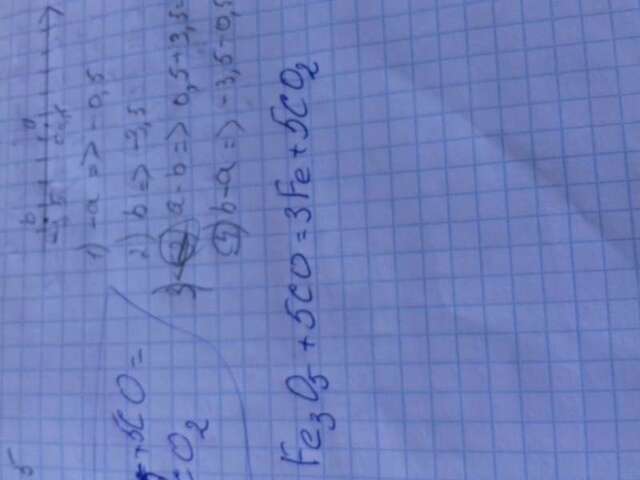 b a
1) -a => -0,5
2) b => -3,5
3) a-b => 0,5+3,5=
4) b-a => -3,5-0,5
5
+5CO=
CO₂
Fe₃O₅ + 5CO = 3Fe + 5CO₂